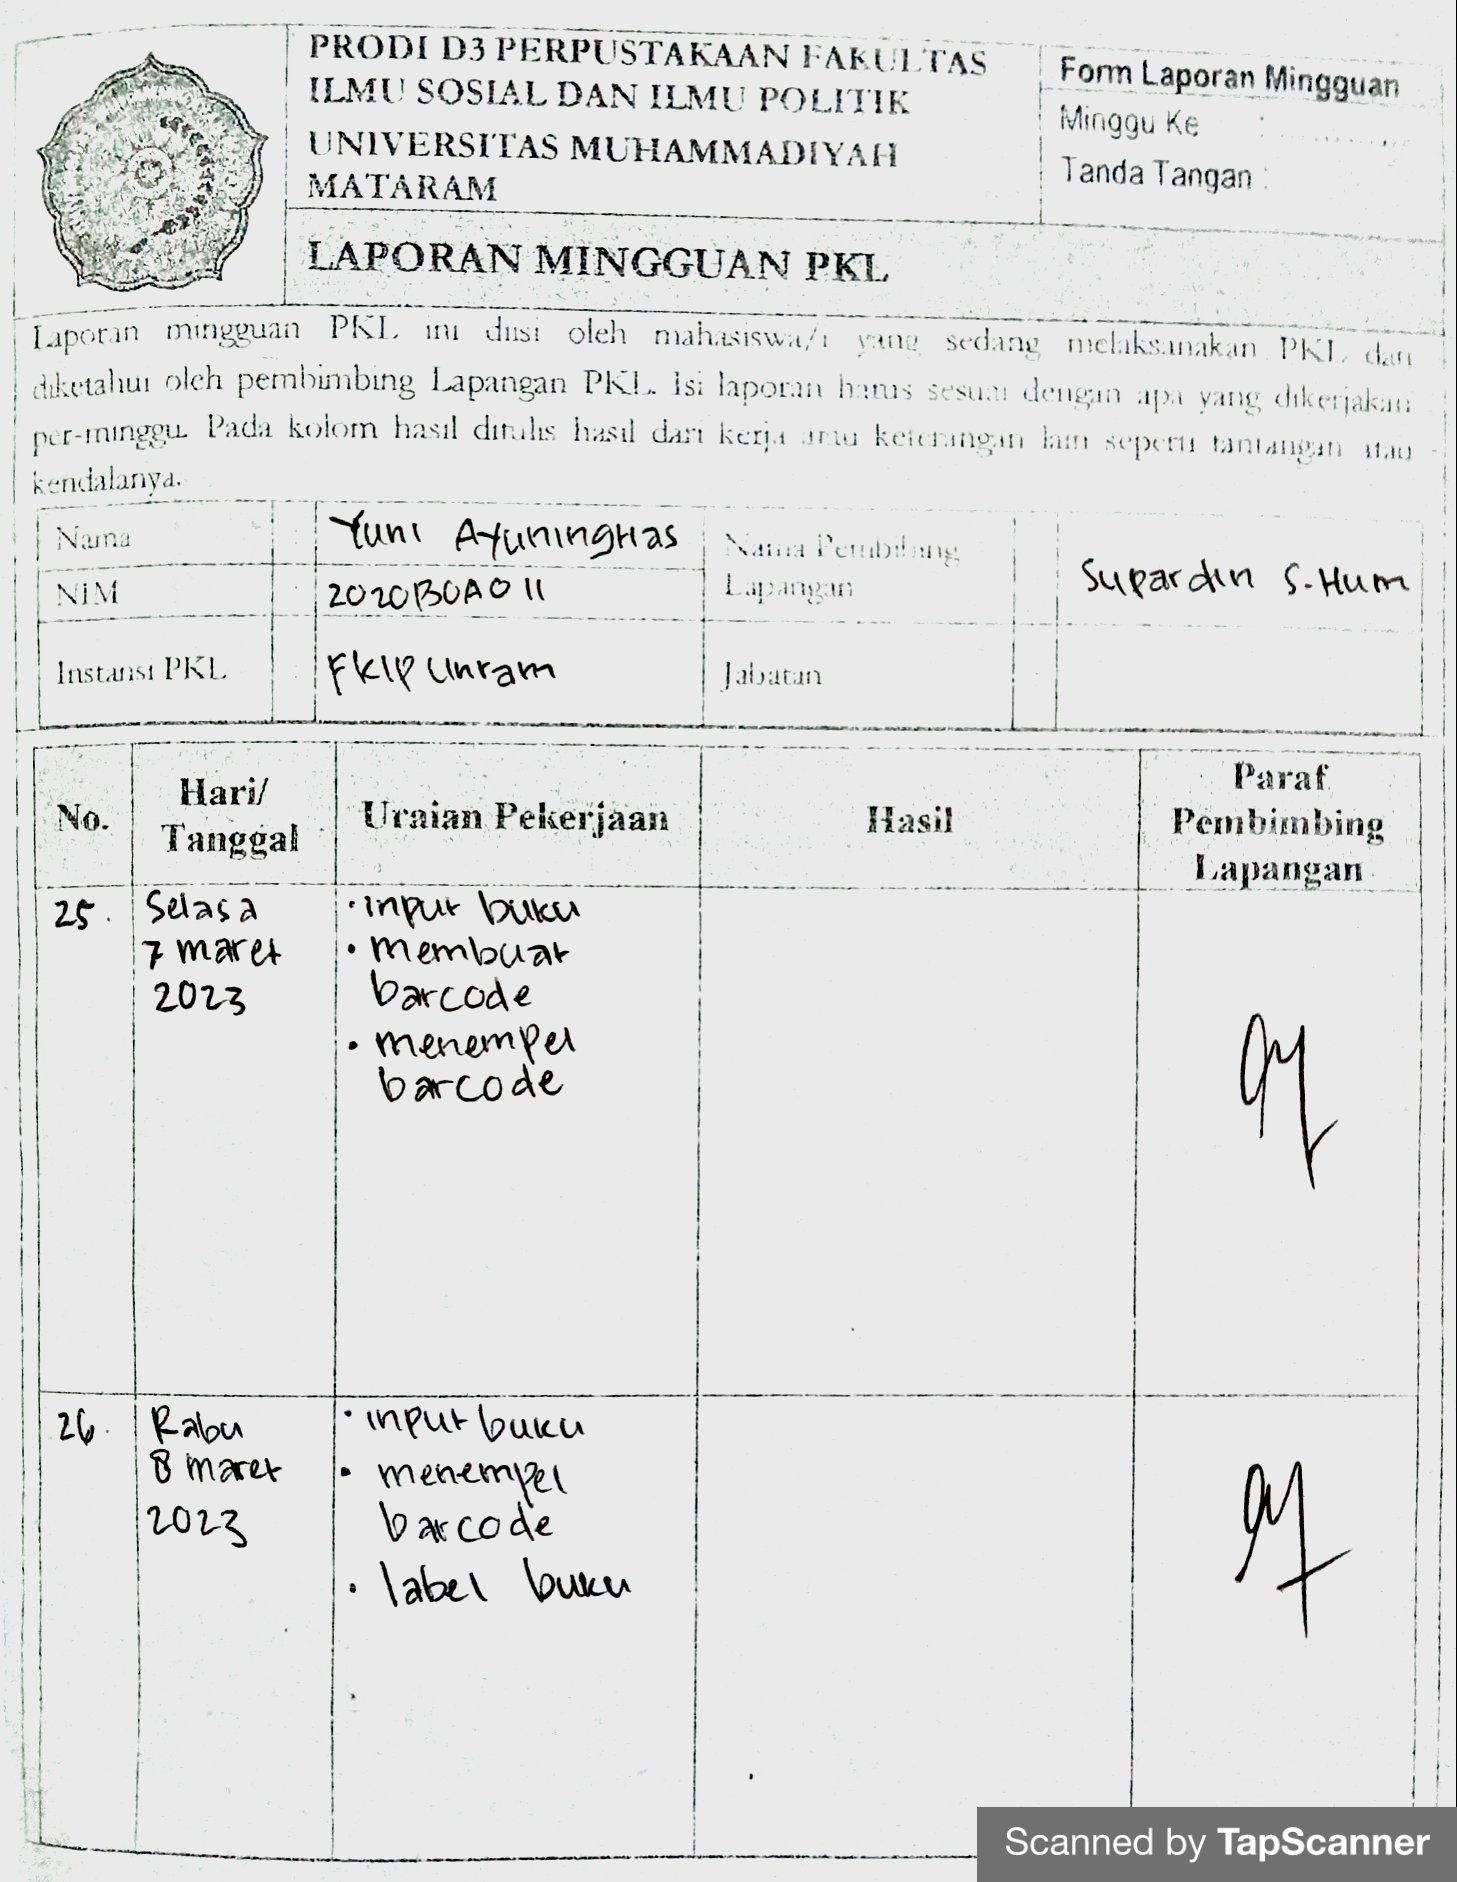 PRODI D3 PERPUSTAKAAN FAKULTAS
ILMU SOSIAL DAN ILMU POLITIK
UNIVERSITAS MUHAMMADIYAH
MATARAM
Form Laporan Mingguan
Minggu Ke : ............
Tanda Tangan :
LAPORAN MINGGUAN PKL
Laporan mingguan PKL ini diisi oleh mahasiswa/i yang sedang melaksanakan PKL dan
diketahui oleh pembimbing Lapangan PKL. Isi laporan harus sesuai dengan apa yang dikerjakan
per-minggu. Pada kolom hasil ditulis hasil dari kerja atau keterangan lain seperti tantangan atau
kendalanya.
Nama Yuni Ayuningtias
Nama Pembibing
Lapangan
Supardin S.Hum
NIM 2020B0A011
Instansi PKL FKIP Unram
Jabatan
No.
Hari/
Tanggal
Uraian Pekerjaan
Hasil
Paraf
Pembimbing
Lapangan
25.
Selasa
7 maret
2023
• input buku
• membuat
barcode
• menempel
barcode
26.
Rabu
8 maret
2023
• input buku
• menempel
barcode
• label buku
Scanned by TapScanner